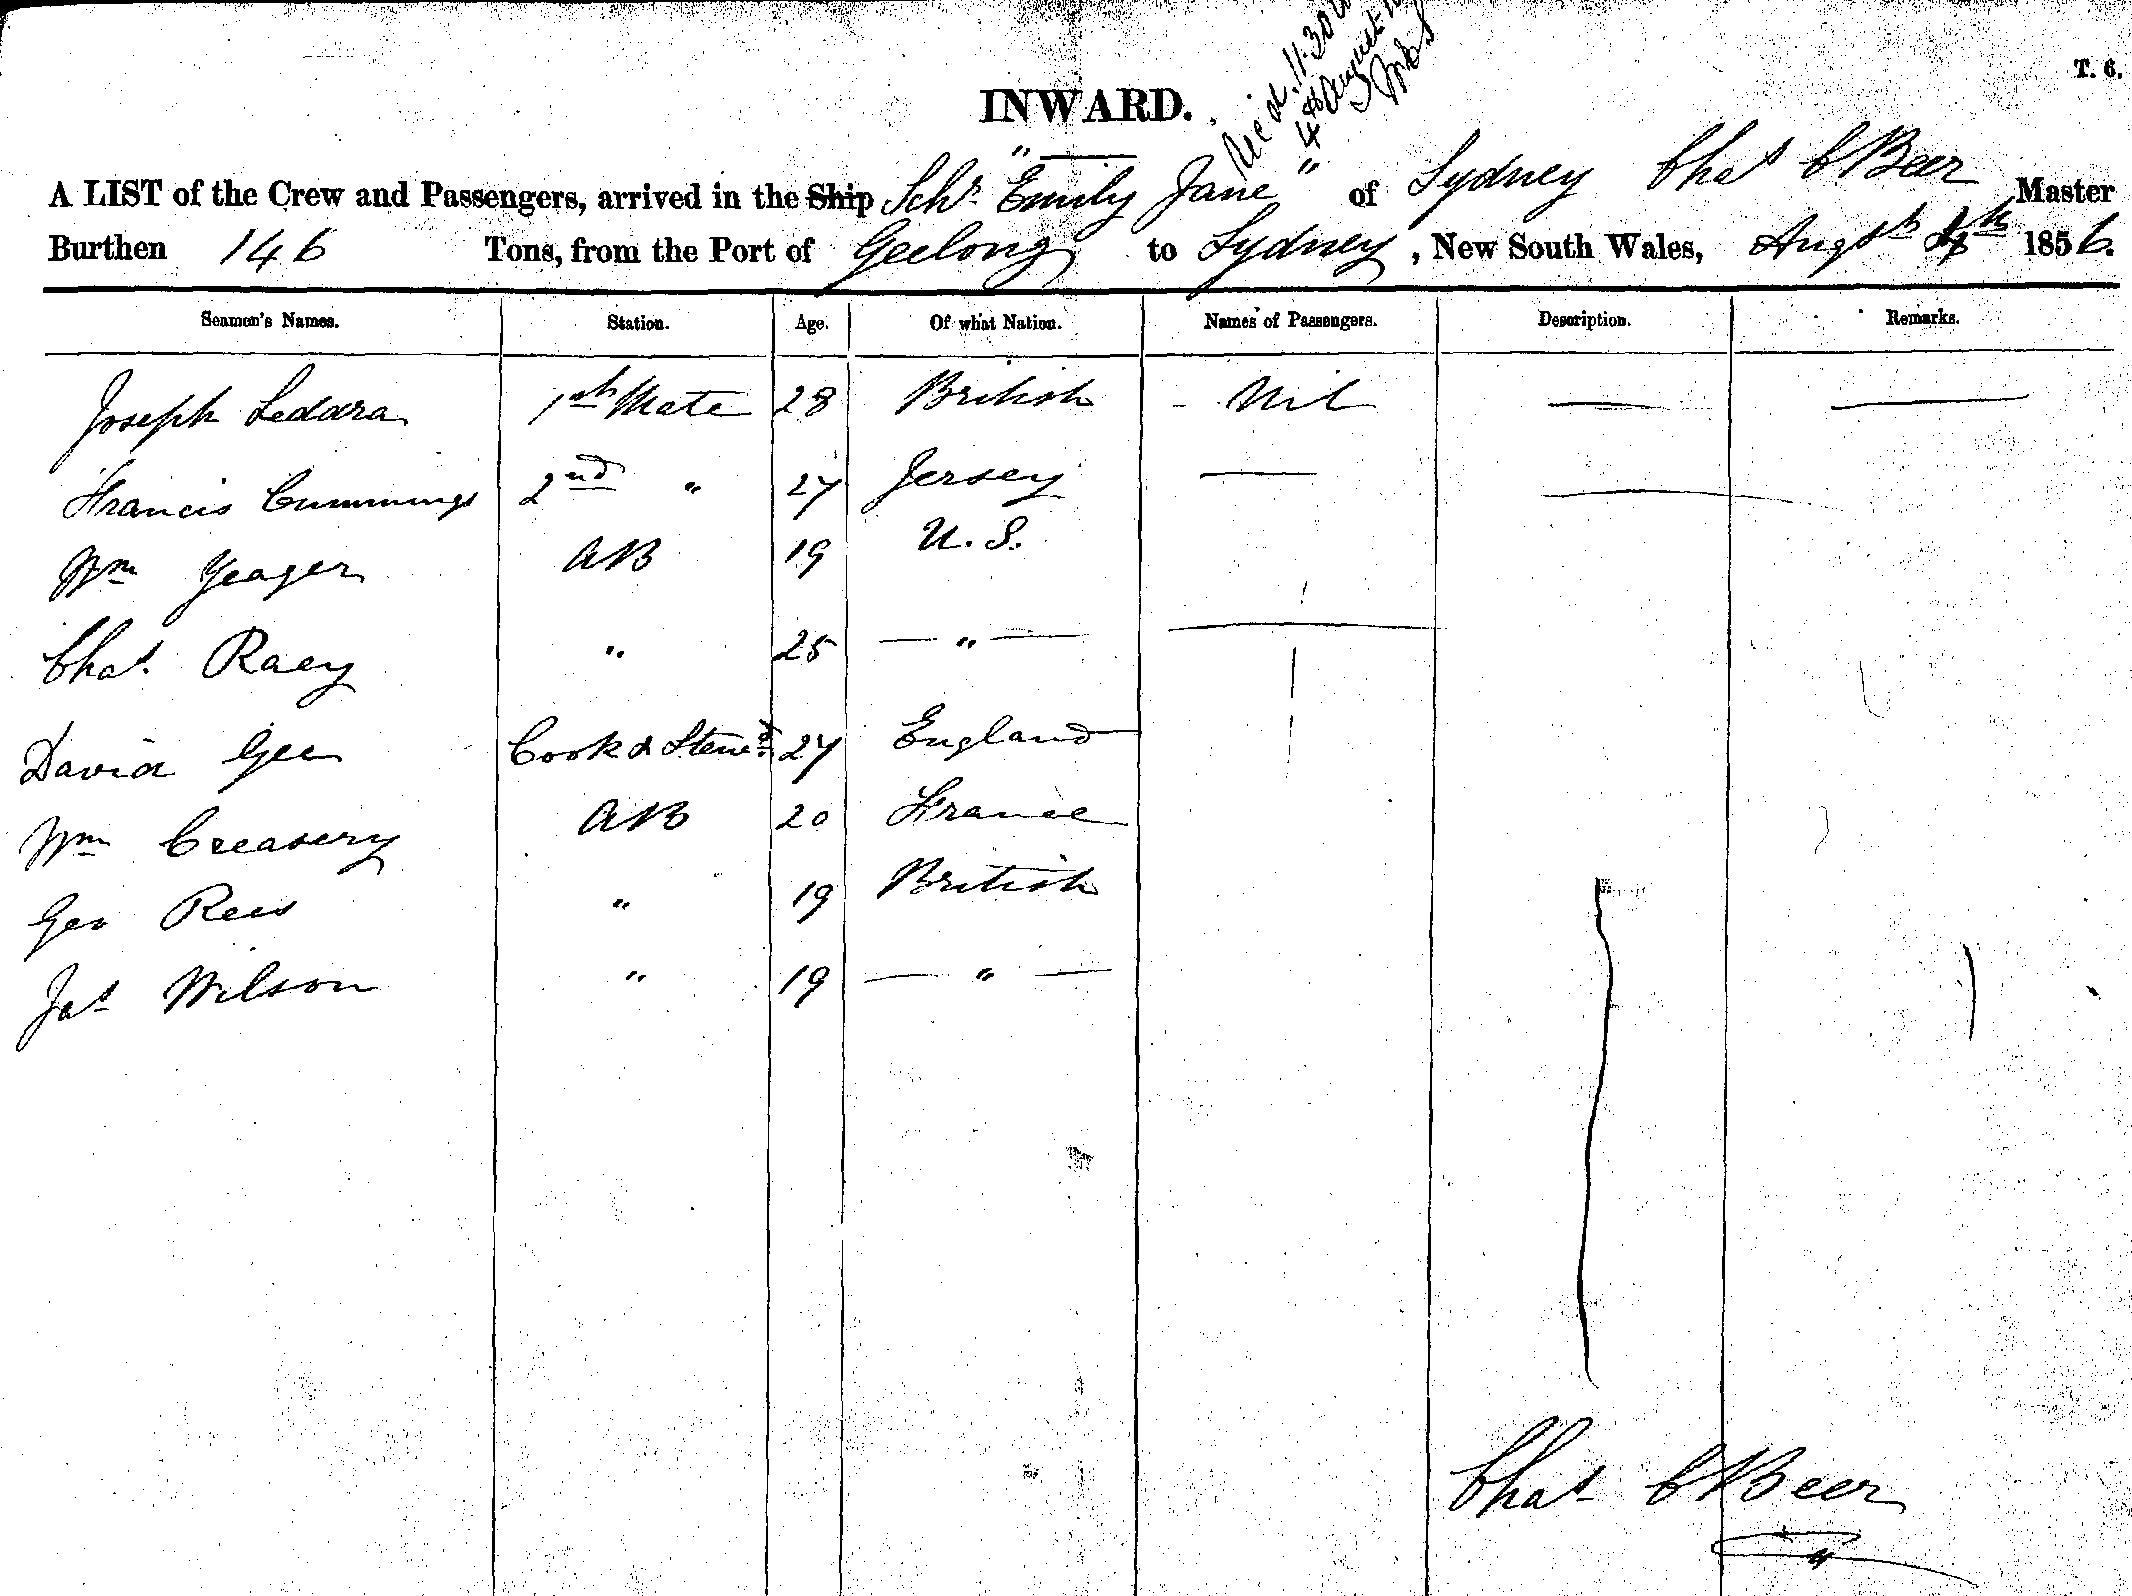 T. 6.
Rec'd. 11.30
4th August
INWARD.
A LIST of the Crew and Passengers, arrived in the Ship Schr. "Emily Jane" of Sydney Chas C Beer Master
Burthen 146 Tons, from the Port of Geelong to Sydney, New South Wales, Augst 4th 1856.
Seamen's Names. Station. Age. Of what Nation. Names of Passengers. Description. Remarks.
Joseph Leddra 1st Mate 28 British - Nil — —
Francis Cummings 2nd " 27 Jersey — —
Wm Yeager AB 19 U.S.
Chas. Raey " 25 — " —
David Gee Cook & Stewd. 27 England
Wm Creasery AB 20 France
Geo Rees " 19 British
Jas Wilson " 19 — " —
Chas C Beer